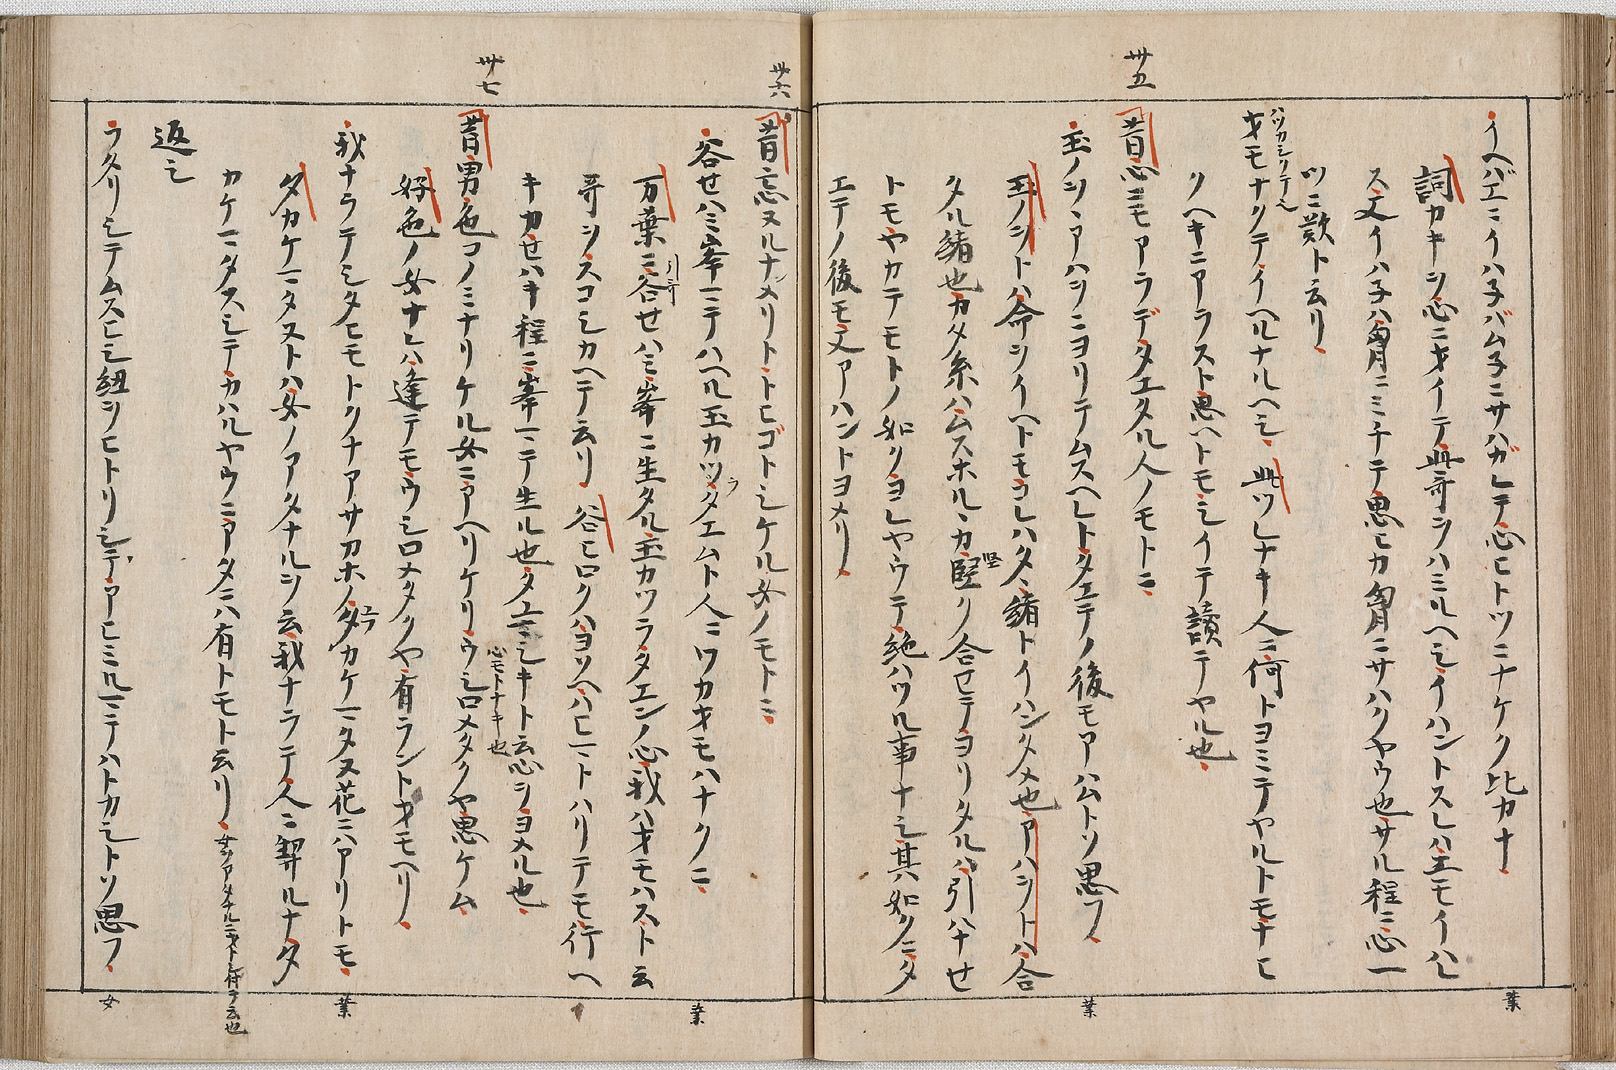 イヘバエニイハ子バム子ニサハガレテ心ヒトツニナケク比カナ
業
詞カキシ心ニオイテ此哥シハミルヘシイハントスレハ主モイハレ
ス又イハ子ハ胸ニミチテ思ニカ胸ニサハクヤウ也サル程ニ心一
ツニ歎ト云リ
オモナクテイヘルナルヘシ此ツレナキ人ニ何トヨミテヤルトモナヒ
クヘキニアラスト思ヘトモシイテ讀テヤル也
卅五
昔心ニモアラデタエタル人ノモトニ
玉ノシヽアハシニヨリテムスヘレトタエテノ後モアハムトソ思フ
業
玉ノシトハ命シイヘトモコレハタヽ緒トイハンタメ也アハシトハ合
タル緒也カタ糸ハムスホルヽカ堅ク合セテヨリタルハ引ハナセ
トモヤカテモトノ如クヨレヤウテ絶ハツル事ナシ其如クニタ
エテノ後モ又アハントヨメリ
卅六
昔忘ヌルナメリトトヒゴトシケルメノモトニ
谷せハミ峯ニテハヘル玉カツラタエムト人ニワカオモハナクニ
業
万葉ニ谷せハミ峯ニ生タル玉カツラタエンノ心我ハオモハスト云
引哥
哥シスコシカヘテ云リ谷ヒロクハヨソヘハヒトハリテモ行ヘ
キカせハキ程ニ峯ニテ生ル也タエシキト云心シヨメル也
心モトナキ也
卅七
昔男色コノミナリケル女ニアヘリケリウシロメタクヤ思ケム
好色ノ女ナレハ逢テモウシロメタクヤ有ラントオモヘリ
我ナラテシタヒモトクナアサカホノタカケマタヌ花ニハアリトモ
業
タカケマタヌトハ女ノアタナルシ云我ナラテ人ニ契ルナタ
カケマタスシテカハルヤウニアタニハ有トモト云リ
返シ
フタリシテムスヒシ紐シヒトリシテアヒミルマテハトカシトソ思フ
女